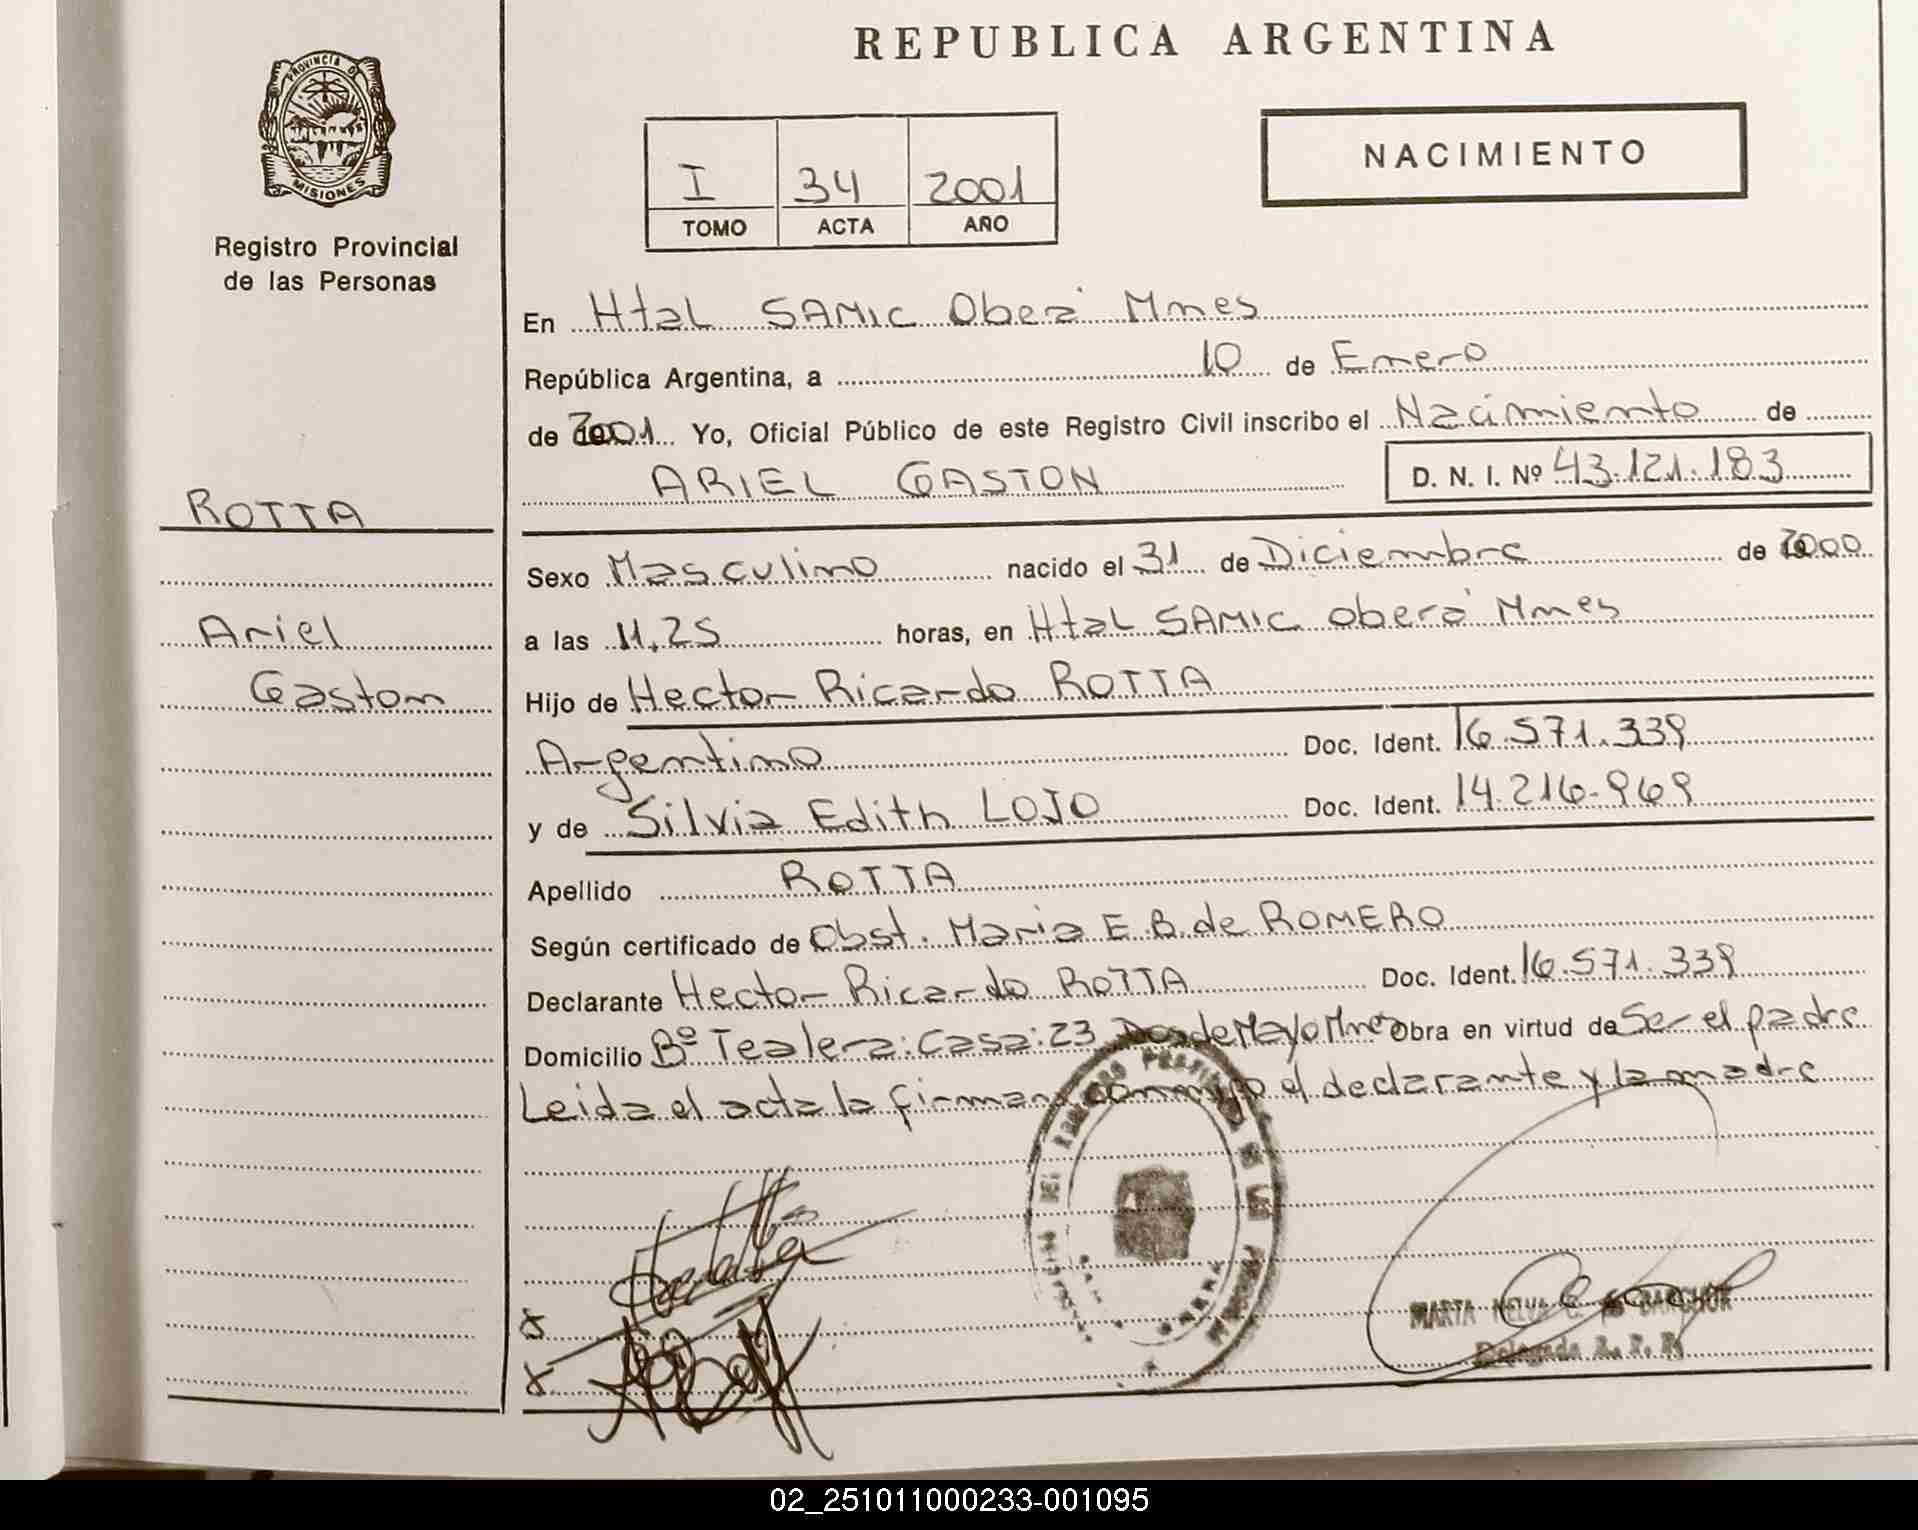 REPUBLICA ARGENTINA
PROVINCIA DE
MISIONES
Registro Provincial
de las Personas
I 34 2001
TOMO ACTA AÑO
NACIMIENTO
En Htal SAMIC Oberá Mnes
República Argentina, a 10 de Enero
de 2001 Yo, Oficial Público de este Registro Civil inscribo el Nacimiento de
ARIEL GASTON D. N. I. Nº 43.121.183
ROTTA
Ariel
Gaston
Sexo Masculino nacido el 31 de Diciembre de 2000
a las 11,25 horas, en Htal SAMIC Oberá Mnes
Hijo de Hector Ricardo ROTTA
Argentino Doc. Ident. 16.571.339
y de Silvia Edith LOJO Doc. Ident. 14.216.969
Apellido ROTTA
Según certificado de Obst. Maria E.B. de ROMERO
Declarante Hector Ricardo ROTTA Doc. Ident. 16.571.339
Domicilio Bº Tealera: Casa: 23 Dos de Mayo Mnes Obra en virtud de Ser el padre
Leida el acta la firman conmigo el declarante y la madre
x
x
MARTA NELVA
Delegada R. P. P.
02_251011000233-001095